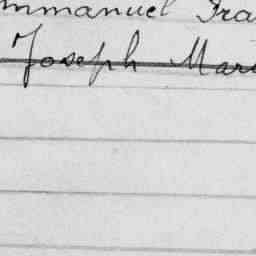 mmanuel Fra
Joseph Mari